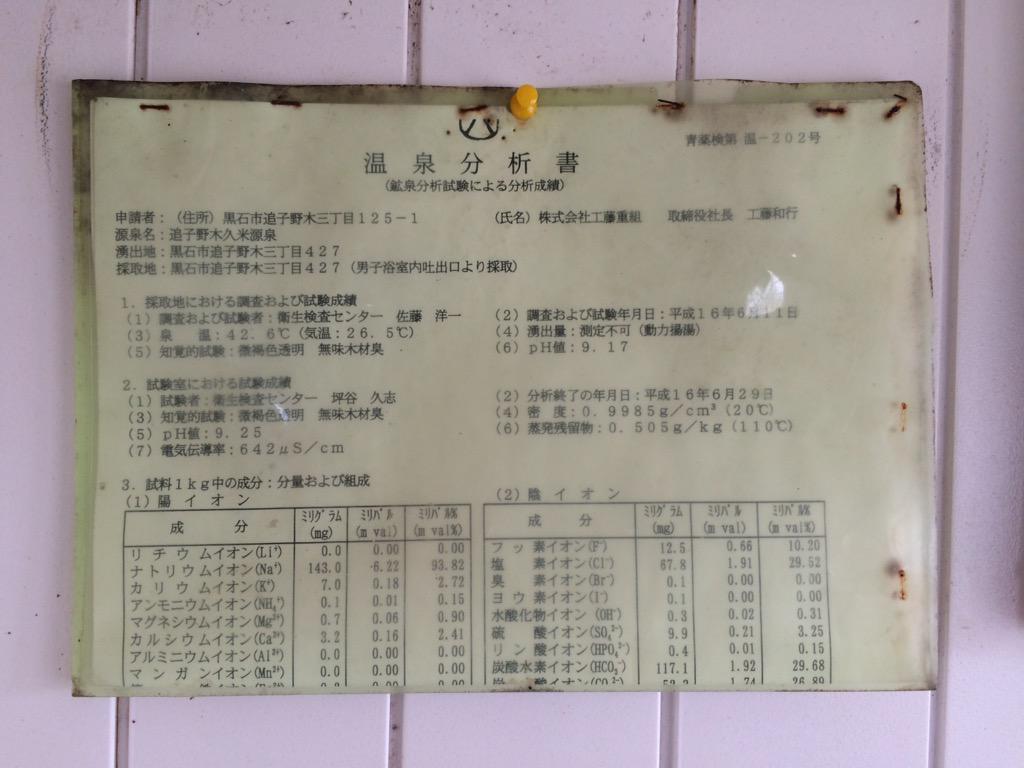 青薬検第 温-202号
温泉分析書
(鉱泉分析試験による分析成績)
申請者:(住所)黒石市追子野木三丁目125-1 (氏名)株式会社工藤重組 取締役社長 工藤和行
源泉名:追子野木久米源泉
湧出地:黒石市追子野木三丁目427
採取地:黒石市追子野木三丁目427(男子浴室内吐出口より採取)
1.採取地における調査および試験成績
(1)調査および試験者:衛生検査センター 佐藤 洋一 (2)調査および試験年月日:平成16年6月11日
(3)泉 温:42.6℃(気温:26.5℃) (4)湧出量:測定不可(動力揚湯)
(5)知覚的試験:微褐色透明 無味木材臭 (6)pH値:9.17
2.試験室における試験成績
(1)試験者:衛生検査センター 坪谷 久志 (2)分析終了の年月日:平成16年6月29日
(3)知覚的試験:微褐色透明 無味木材臭 (4)密 度:0.9985g/cm³(20℃)
(5)pH値:9.25 (6)蒸発残留物:0.505g/kg(110℃)
(7)電気伝導率:642μS/cm
3.試料1kg中の成分:分量および組成
(1)陽イオン
成 分 ミリグラム(mg) ミリバル(m val) ミリバル%(m val%)
リチウムイオン(Li⁺) 0.0 0.00 0.00
ナトリウムイオン(Na⁺) 143.0 6.22 93.82
カリウムイオン(K⁺) 7.0 0.18 2.72
アンモニウムイオン(NH₄⁺) 0.1 0.01 0.15
マグネシウムイオン(Mg²⁺) 0.7 0.06 0.90
カルシウムイオン(Ca²⁺) 3.2 0.16 2.41
アルミニウムイオン(Al³⁺) 0.0 0.00 0.00
マンガンイオン(Mn²⁺) 0.0 0.00 0.00
(2)陰イオン
成 分 ミリグラム(mg) ミリバル(m val) ミリバル%(m val%)
フッ素イオン(F⁻) 12.5 0.66 10.20
塩素イオン(Cl⁻) 67.8 1.91 29.52
臭素イオン(Br⁻) 0.1 0.00 0.00
ヨウ素イオン(I⁻) 0.1 0.00 0.00
水酸化物イオン(OH⁻) 0.3 0.02 0.31
硫酸イオン(SO₄²⁻) 9.9 0.21 3.25
リン酸イオン(HPO₄²⁻) 0.4 0.01 0.15
炭酸水素イオン(HCO₃⁻) 117.1 1.92 29.68
炭酸イオン(CO₃²⁻) 52.2 1.74 26.89